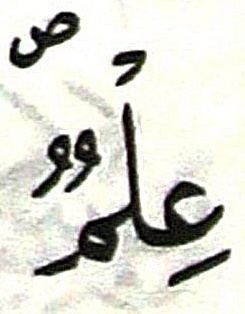 ص
عِلْمٌ